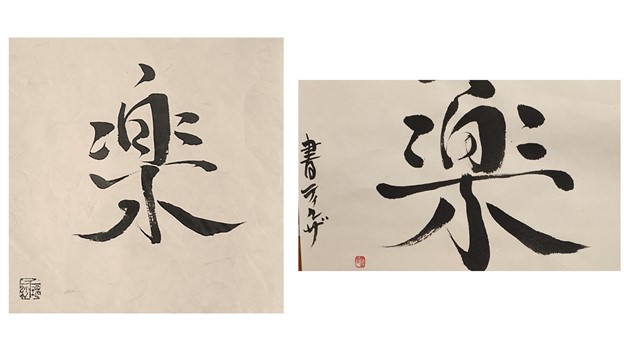 楽
楽
書ティルザ